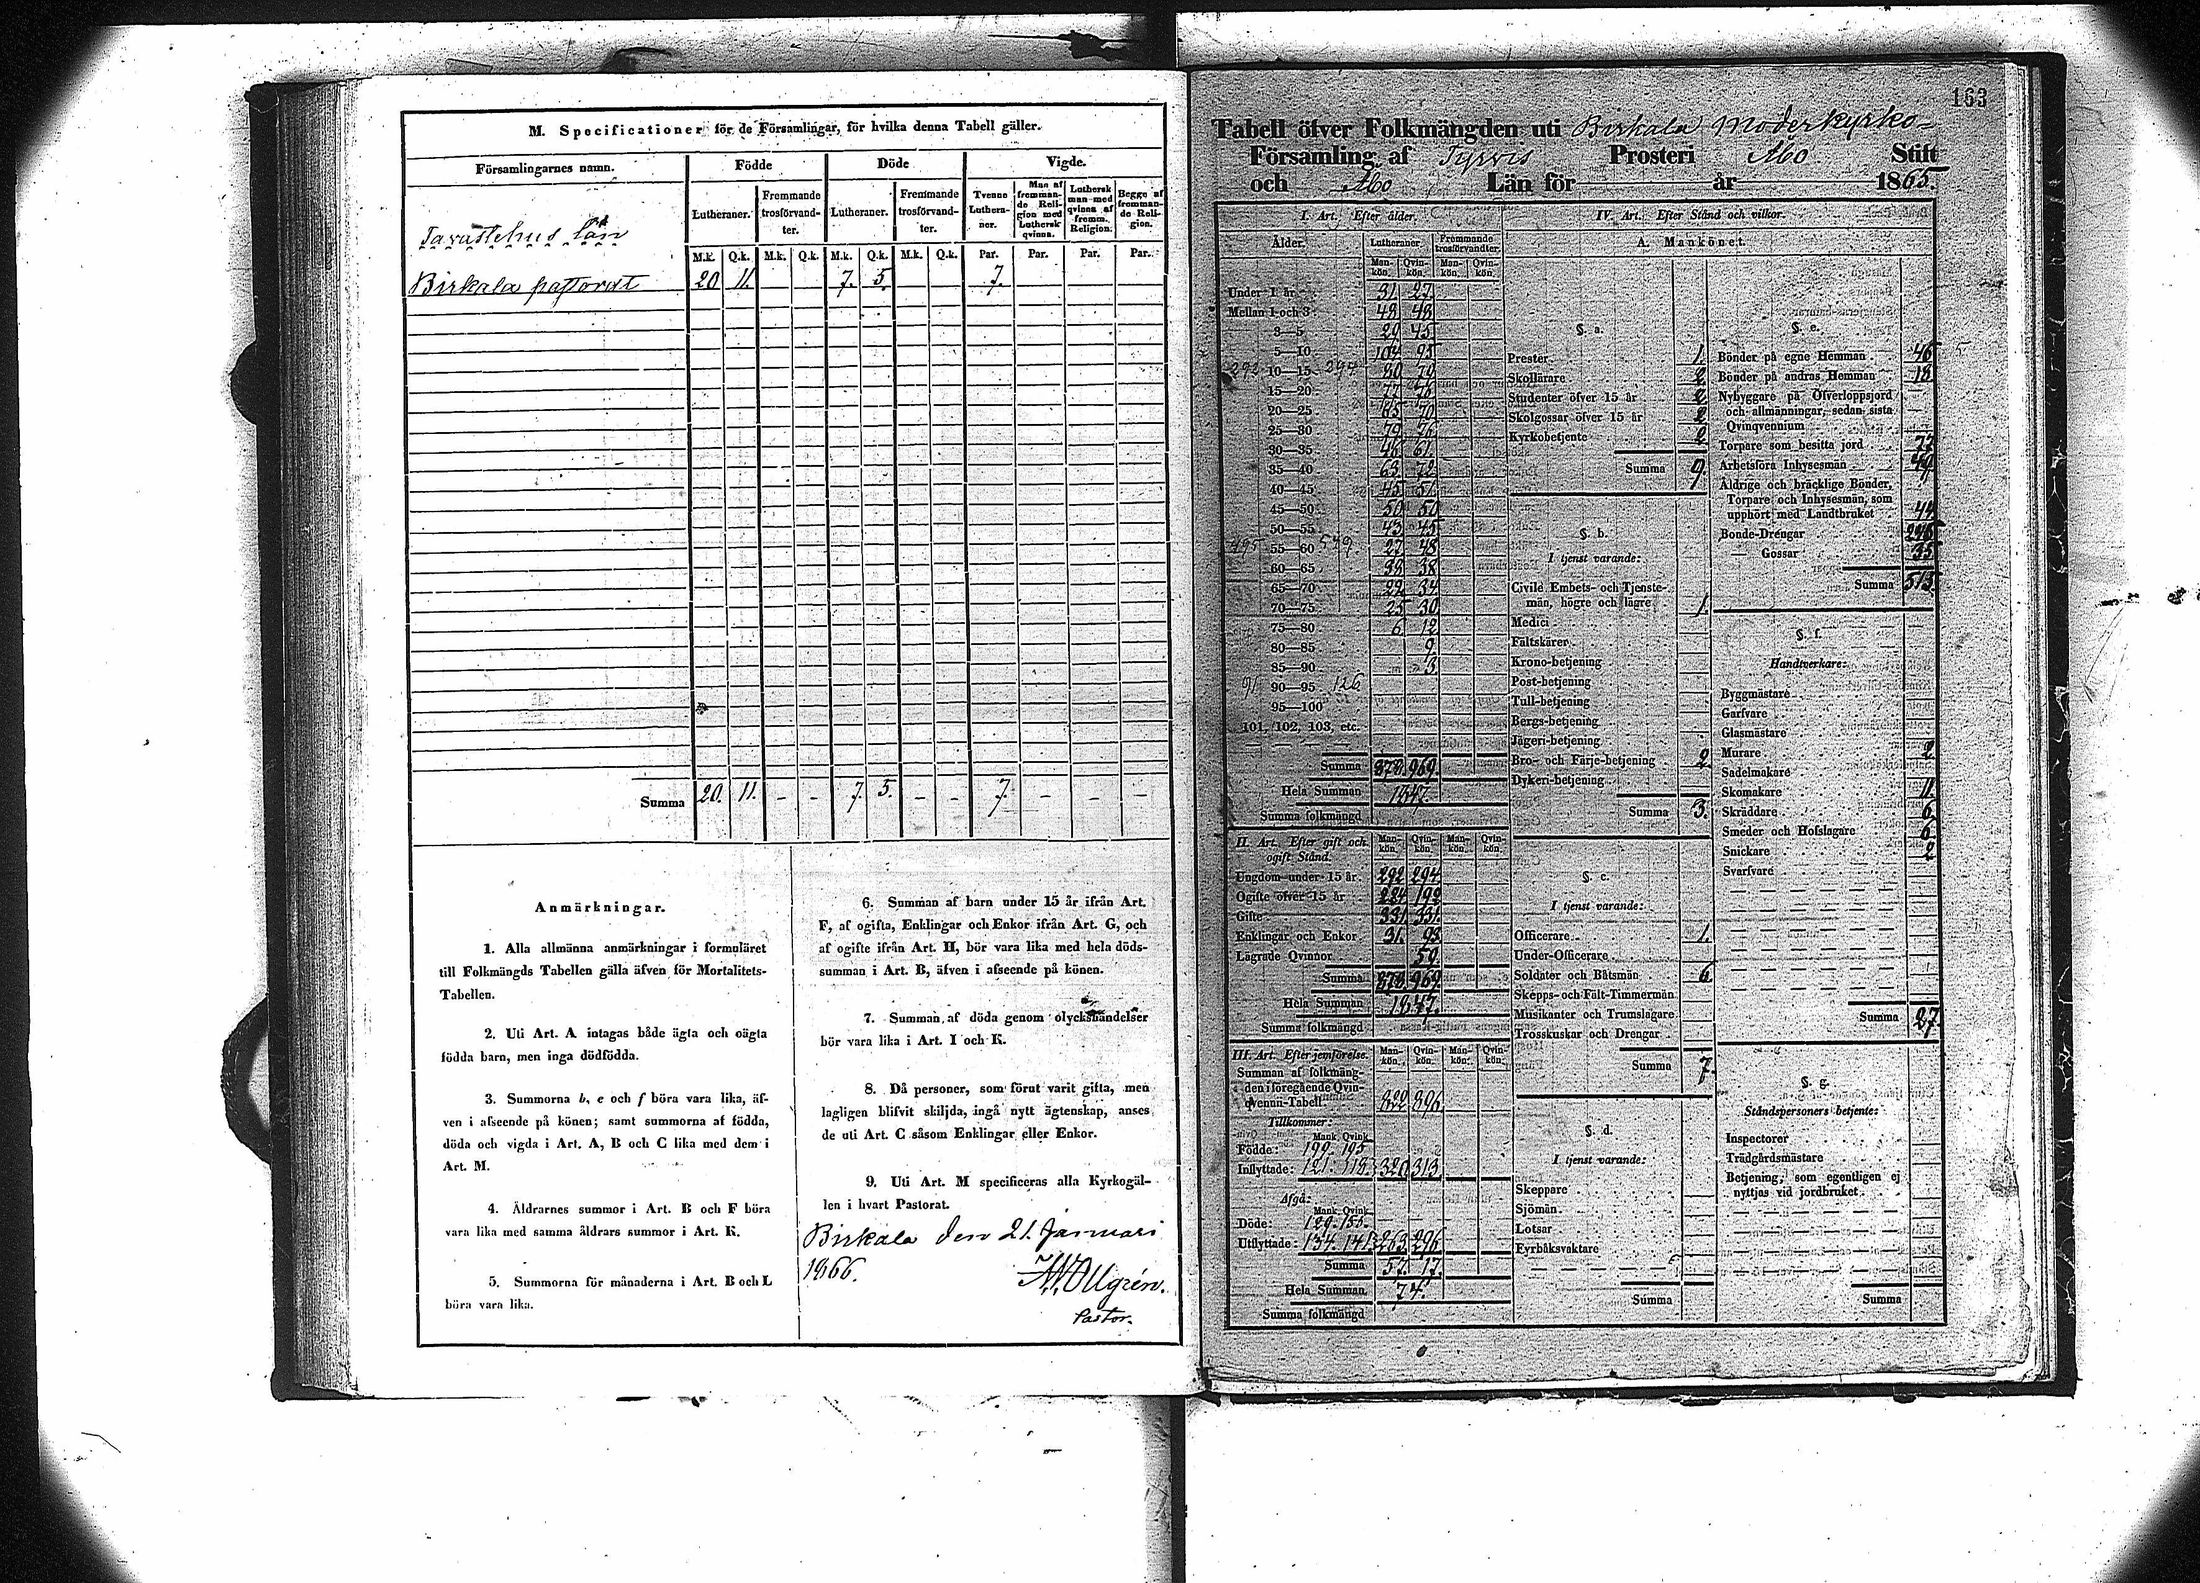 M. Specificationer för de Församlingar, för hvilka denna Tabell gäller.
Församlingarnes namn.
Födde
Döde
Vigde.
Lutheraner.
Fremmande trosförvandter.
Lutheraner.
Fremmande trosförvandter.
Tvenne Lutheraner.
Man af fremmande Religion med Luthersk qvinna.
Luthersk man med qvinna af fremm. Religion.
Begge af fremmande Religion.
Tavastehus län
M.k. Q.k. M.k. Q.k. M.k. Q.k. M.k. Q.k. Par. Par. Par. Par.
Birkala pastorat 20 11. 7. 5. 7.
Summa 20. 11. - - 7. 5. - - 7. - - -
Anmärkningar.
1. Alla allmänna anmärkningar i formuläret
till Folkmängds Tabellen gälla äfven för Mortalitets-
Tabellen.
2. Uti Art. A intagas både ägta och oägta
födda barn, men inga dödfödda.
3. Summorna b, e och f böra vara lika, äf-
ven i afseende på könen; samt summorna af födda,
döda och vigda i Art. A, B och C lika med dem i
Art. M.
4. Äldrarnes summor i Art. B och F böra
vara lika med samma åldrars summor i Art. K.
5. Summorna för månaderna i Art. B och L
böra vara lika.
6. Summan af barn under 15 år ifrån Art.
F, af ogifta, Enklingar och Enkor ifrån Art. G, och
af ogifte ifrån Art. H, bör vara lika med hela döds-
summan i Art. B, äfven i afseende på könen.
7. Summan af döda genom olyckshändelser
bör vara lika i Art. I och K.
8. Då personer, som förut varit gifta, men
lagligen blifvit skiljda, ingå nytt ägtenskap, anses
de uti Art. C såsom Enklingar eller Enkor.
9. Uti Art. M specificeras alla Kyrkogäl-
len i hvart Pastorat.
Birkala den 21. Januari
1866.
Pastor.
163
Tabell öfver Folkmängden uti Birkala Moderkyrko-
Församling af Tyrvis Prosteri Åbo Stift
och Åbo Län för år 1865.
I. Art. Efter ålder.
Ålder.
Lutheraner
Fremmande trosförvandter
Mankön. Qvinkön. Mankön. Qvinkön.
Under 1 år 31. 27.
Mellan 1 och 3 48. 48.
3—5 29. 45.
5—10 104. 95.
292 10—15 294 80 79
15—20 77 76
20—25 85 70
25—30 79 76
30—35 48 61.
35—40 63 72
40—45 45 51.
45—50 50 50
50—55 43 45
495 55—60 549 27 48
60—65 38 38
65—70 22 34
70—75 25 30
75—80 6. 12
80—85 9.
85—90 3
91 90—95 126
95—100
101, 102, 103, etc.
Summa 878. 969.
Hela Summan 1847.
Summa folkmängd
II. Art. Efter gift och ogift Stånd.
Mankön. Qvinkön. Mankön. Qvinkön.
Ungdom under 15 år 292 294
Ogifte öfver 15 år 224 192
Gifte 331. 331.
Enklingar och Enkor 31. 93
Lägrade Qvinnor 59.
Summa 878. 969.
Hela Summan 1847.
Summa folkmängd
III. Art. Efter jemförelse.
Mankön. Qvinkön. Mankön. Qvinkön.
Summan af folkmäng-
den i föregående Qvin-
qvenni-Tabell 822 896
Tillkommer:
Mank. Qvink.
Födde: 199. 195
Inflyttade: 121. 118. 320 313
Afgå:
Mank. Qvink.
Döde: 129. 155.
Utflyttade: 134. 141. 263. 296
Summa 57. 17.
Hela Summan 74.
Summa folkmängd
IV. Art. Efter Stånd och vilkor.
A. Mankönet.
§. a.
Prester 1.
Skollärare 2
Studenter öfver 15 år 2
Skolgossar öfver 15 år 2
Kyrkobetjente 2
Summa 9.
§. b.
I tjenst varande:
Civile Embets- och Tjenste-
män, högre och lägre 1.
Medici
Fältskärer
Krono-betjening
Post-betjening
Tull-betjening
Bergs-betjening
Jägeri-betjening
Bro- och Färje-betjening 2.
Dykeri-betjening
Summa 3.
§. c.
I tjenst varande:
Officerare 1.
Under-Officerare
Soldater och Båtsmän 6
Skepps- och Fält-Timmermän
Musikanter och Trumslagare
Trosskuskar och Drengar
Summa 7.
§. d.
I tjenst varande:
Skeppare
Sjömän
Lotsar
Fyrbåksvaktare
Summa
§. e.
Bönder på egne Hemman 46
Bönder på andras Hemman 18
Nybyggare på Öfverloppsjord
och allmänningar, sedan sista
Qvinqvennium
Torpare som besitta jord 77
Arbetsföra Inhysesmän 49
Åldrige och bräcklige Bönder,
Torpare och Inhysesmän, som
upphört med Landtbruket 44
Bonde-Drengar 246
— Gossar 35
Summa 515.
§. f.
Handtverkare:
Byggmästare
Garfvare
Glasmästare
Murare 2
Sadelmakare
Skomakare 11.
Skräddare 6
Smeder och Hofslagare 6
Snickare 2
Svarfvare
Summa 27.
§. g.
Ståndspersoners betjente:
Inspectorer
Trädgårdsmästare
Betjening, som egentligen ej
nyttjas vid jordbruket
Summa